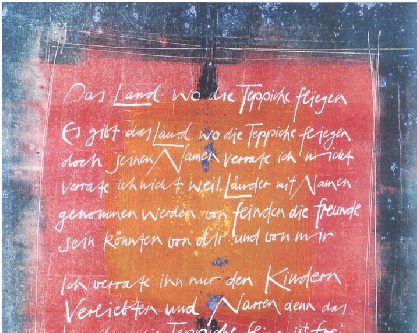 Das Land wo die Teppiche fliegen
Es gibt das Land wo die Teppiche fliegen
doch seinen Namen verrate ich nicht
verrate ich nicht weil Länder mit Namen
genommen werden von Feinden die freunde
sein könnten von dir und von mir
Ich verrate ihn nur den Kindern
Verliebten und Narren denn das